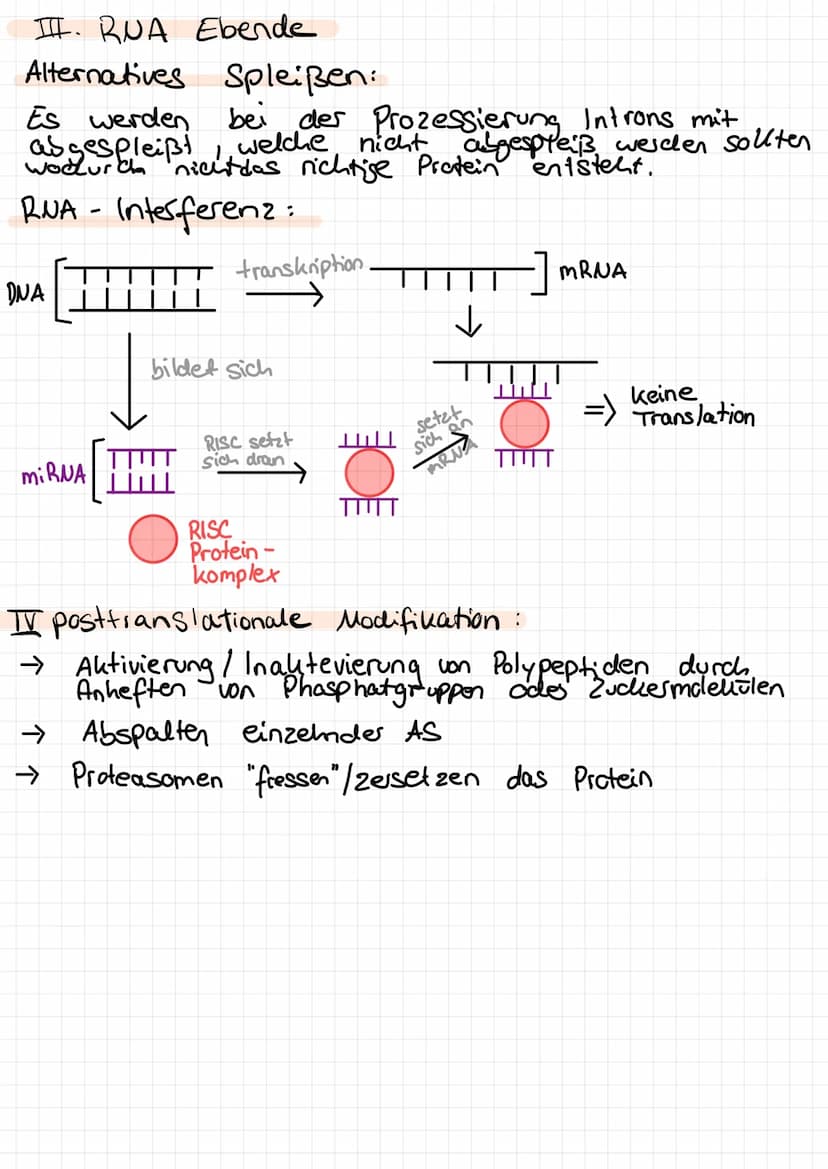 III. RNA Ebende
Alternatives Spleißen:
Es werden bei der Prozessierung Introns mit
abgespleißt, welche nicht abgespleiß werden sollten
wodurch nicht das richtige Protein entsteht.
RNA - Interferenz:
DNA
transkription
mRNA
bildet sich
setzt
sich an
mRNA
=> keine
Translation
miRNA
RISC setzt
sich dran
RISC
Protein-
komplex
IV posttranslationale Modifikation:
→ Aktivierung / Inaktevierung von Polypeptiden durch
Anheften von Phosphatgruppen oder Zuckermolekülen
→ Abspalten einzelnder AS
→ Proteasomen "fressen"/zersetzen das Protein